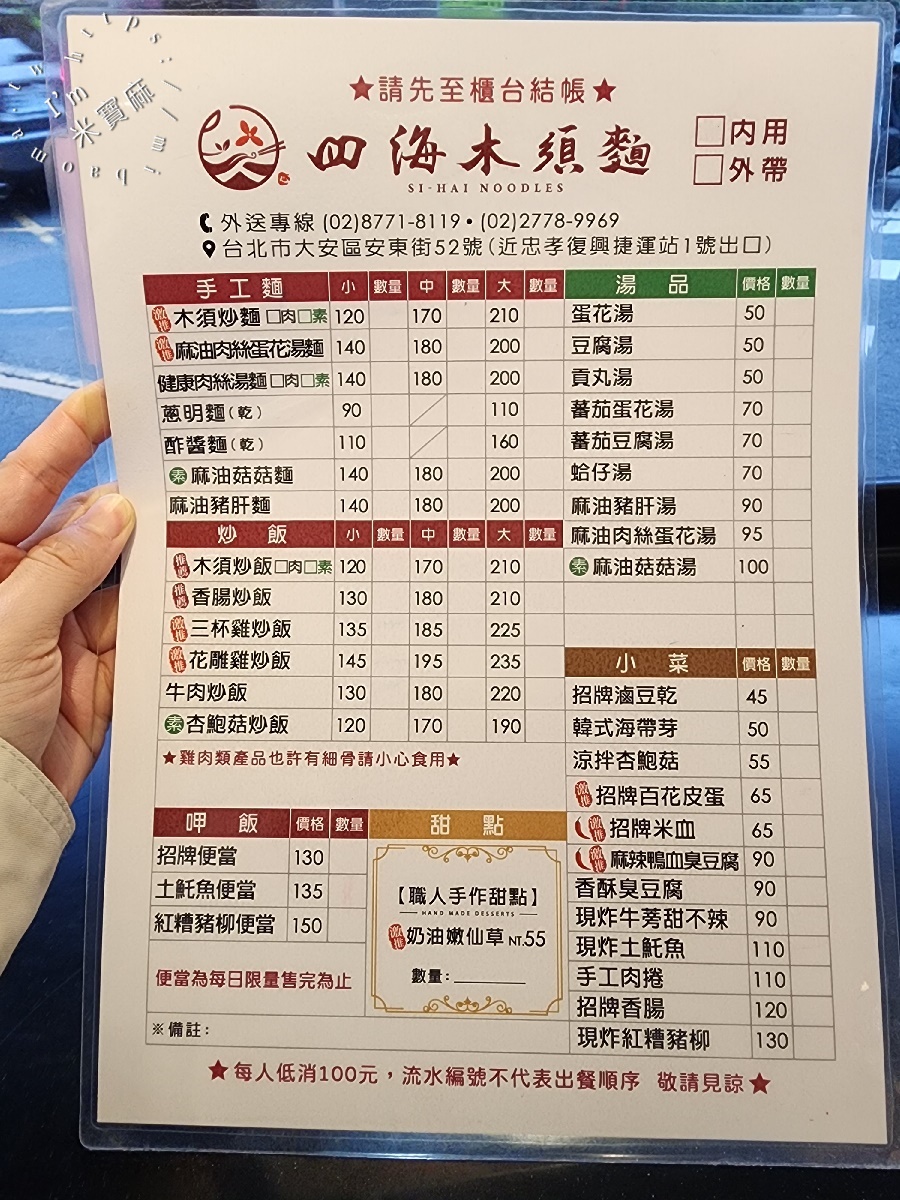 https://
I'm
米寶麻
www.
mibaoma
★請先至櫃台結帳★
四海木須麵
SI-HAI NOODLES
□內用
□外帶
外送專線 (02)8771-8119•(02)2778-9969
台北市大安區安東街52號(近忠孝復興捷運站1號出口)
手工麵 小 數量 中 數量 大 數量
激推 木須炒麵 □肉□素 120 170 210
激推 麻油肉絲蛋花湯麵 140 180 200
健康肉絲湯麵 □肉□素 140 180 200
蔥明麵(乾) 90 110
酢醬麵(乾) 110 160
素 麻油菇菇麵 140 180 200
麻油豬肝麵 140 180 200
炒飯 小 數量 中 數量 大 數量
推薦 木須炒飯□肉□素 120 170 210
推薦 香腸炒飯 130 180 210
激推 三杯雞炒飯 135 185 225
激推 花雕雞炒飯 145 195 235
牛肉炒飯 130 180 220
素 杏鮑菇炒飯 120 170 190
★雞肉類產品也許有細骨請小心食用★
呷飯 價格 數量
招牌便當 130
土魠魚便當 135
紅糟豬柳便當 150
便當為每日限量售完為止
※備註:
甜點
【職人手作甜點】
HAND MADE DESSERTS
激推 奶油嫩仙草 NT.55
數量:
湯品 價格 數量
蛋花湯 50
豆腐湯 50
貢丸湯 50
蕃茄蛋花湯 70
蕃茄豆腐湯 70
蛤仔湯 70
麻油豬肝湯 90
麻油肉絲蛋花湯 95
素 麻油菇菇湯 100
小菜 價格 數量
招牌滷豆乾 45
韓式海帶芽 50
涼拌杏鮑菇 55
激推 招牌百花皮蛋 65
激推 招牌米血 65
激推 麻辣鴨血臭豆腐 90
香酥臭豆腐 90
現炸牛蒡甜不辣 90
現炸土魠魚 110
手工肉捲 110
招牌香腸 120
現炸紅糟豬柳 130
★每人低消100元，流水編號不代表出餐順序 敬請見諒★